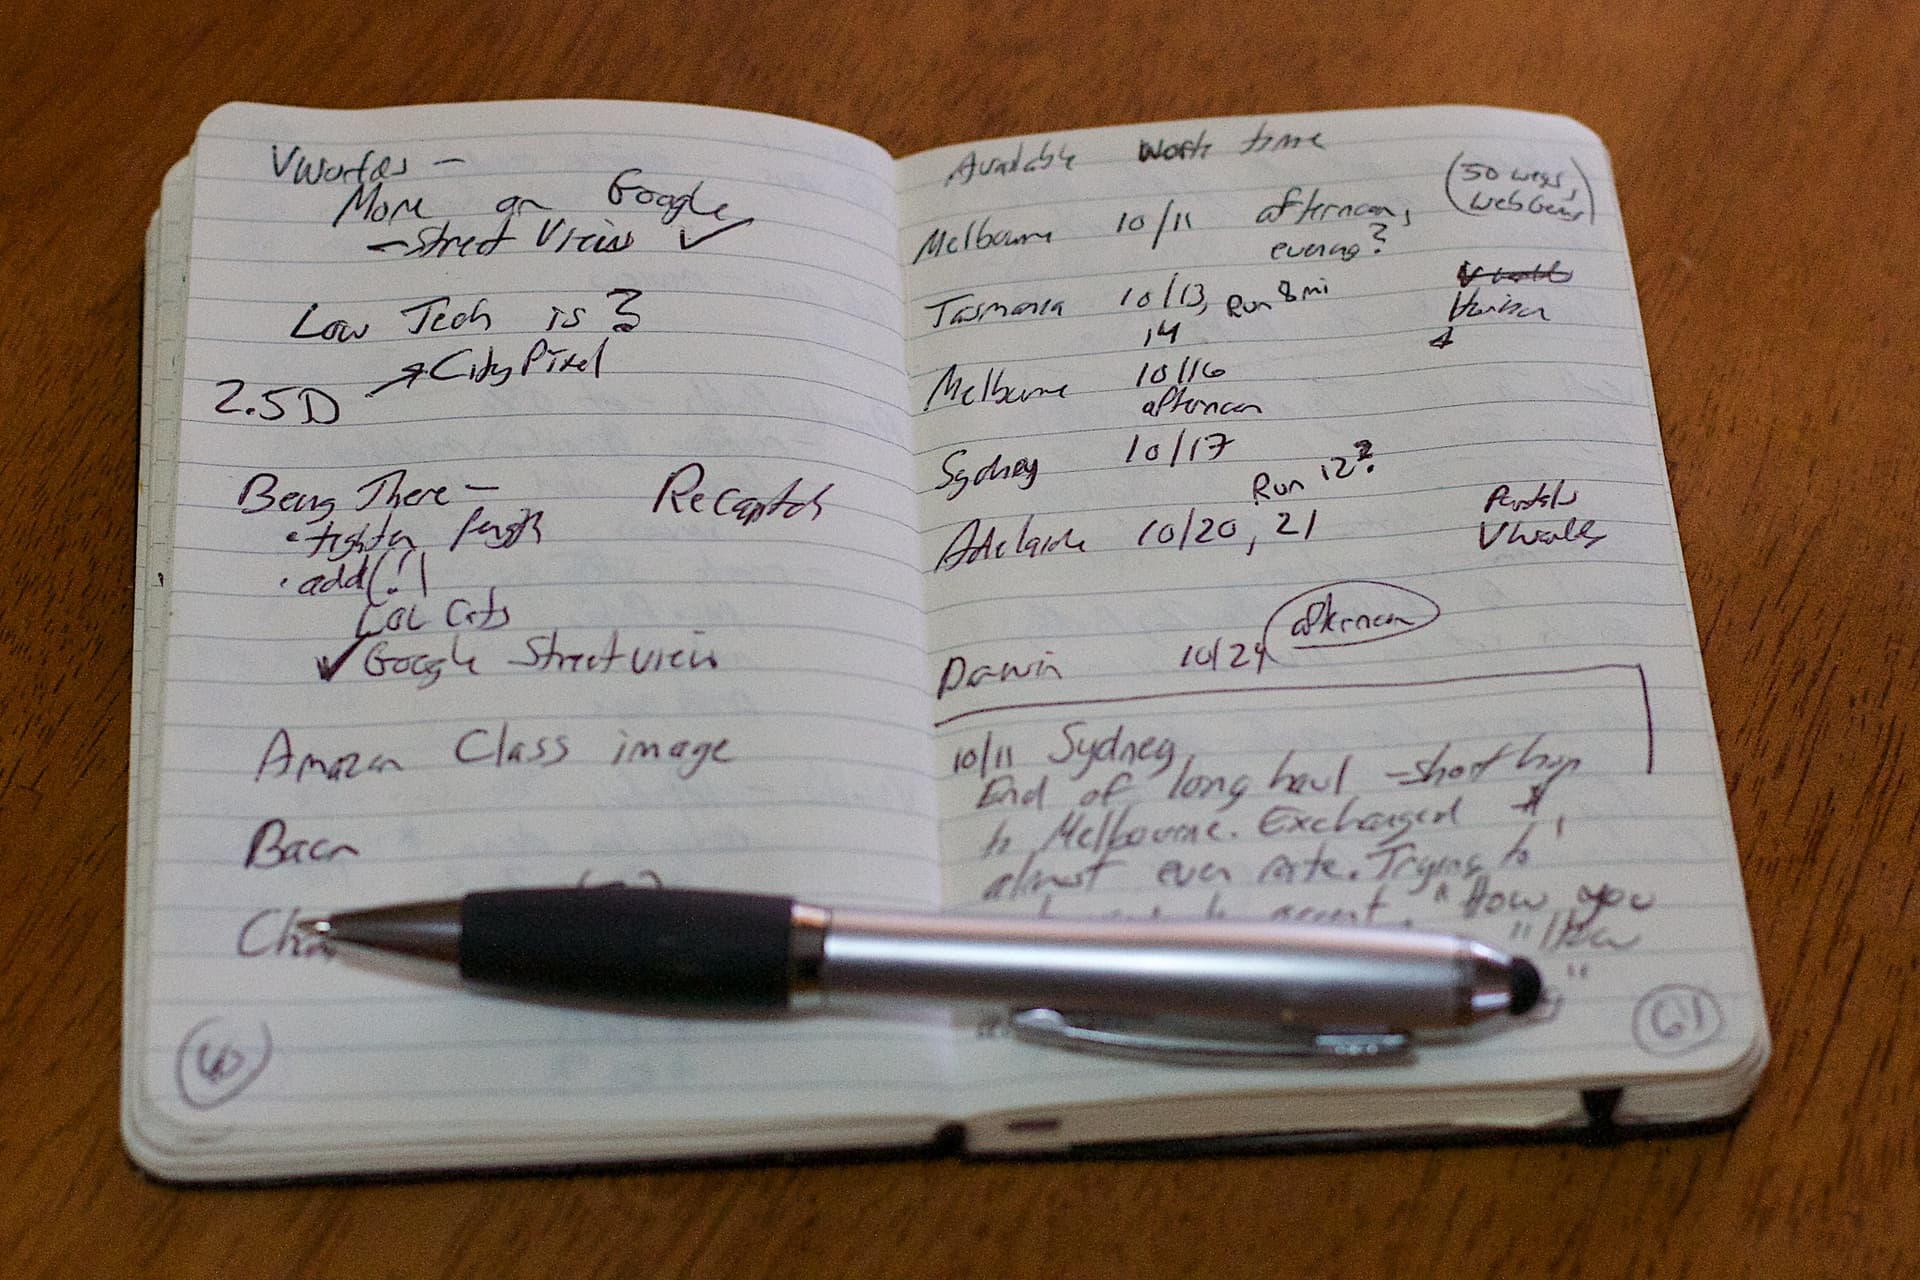 VWorlds -
More on Google
- Street View ✓
Low Tech is ?
→ City Pixel
2.5D
Being There -
• tighten length
• add(!)
LOL Cats
✓ Google Streetview
Recaptcha
Amazon Class image
Bacn
Cha
60
Available Work time
(50 ways, webGems)
Melbourne 10/11 afternoon,
evening?
Tasmania 10/13, Run 8 mi
14
Melbourne 10/16
afternoon
Sydney 10/17
Run 12?
Adelaide 10/20, 21
Portals
VWorlds
Darwin 10/24 afternoon
10/11 Sydney
End of long haul - short hop
to Melbourne. Exchanged $,
almost even rate. Trying to
accent. "How you
"
"
61